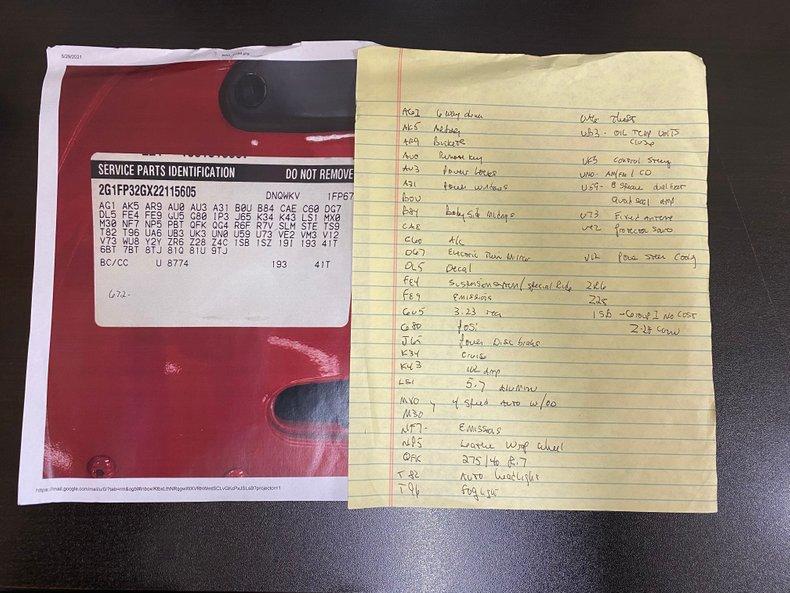 5/28/2021
SERVICE PARTS IDENTIFICATION DO NOT REMOVE
2G1FP32GX22115605
DNQWKV 1FP67
AG1 AK5 AR9 AU0 AU3 A31 B0U B84 CAE C60 DG7
DL5 FE4 FE9 GU5 G80 IP3 J65 K34 K43 LS1 MX0
M30 NF7 NP5 PBT QFK QG4 R6F R7V SLM STE TS9
T82 T96 UA6 UB3 UK3 UN0 U59 U73 VE2 VM3 V12
V73 WU8 Y2Y ZR6 Z28 Z4C 1SB 1SZ 19I 193 41T
6BT 7BT 8TJ 81Q 81U 9TJ
BC/CC U 8774 193 41T
672-
AG1 6 way
AK5 Airbag
AR9 Buckets
AU0 Remote key
AU3 Power Locks
A31 Power windows
B0U
B84 Body side Mldngs
CAE
C60 A/C
DG7 Electric Twin Mirror
DL5 Decal
FE4 Suspension system/special Ride
FE9 Emissions
GU5 3.23 rear
G80 Posi
J65 Power Disc brake
K34 Cruise
K43
LS1 5.7 Aluminum
MX0 y 4 Speed Auto w/OD
M30
NF7- Emissions
NP5 Leather Wrap Wheel
QFK 275/40 R17
T82 Auto headlight
T96 Fog Light
UA6 Theft
UB3- OIL TEMP VOLTS
UK3 Control Steering
UN0- AM/FM/CD
U59- 8 Speaker
amp
U73 Fixed antenna
VE2
V12 Power Steer Cooling
ZR6
Z28
1SB -Group I No COST
Z-28 Conv